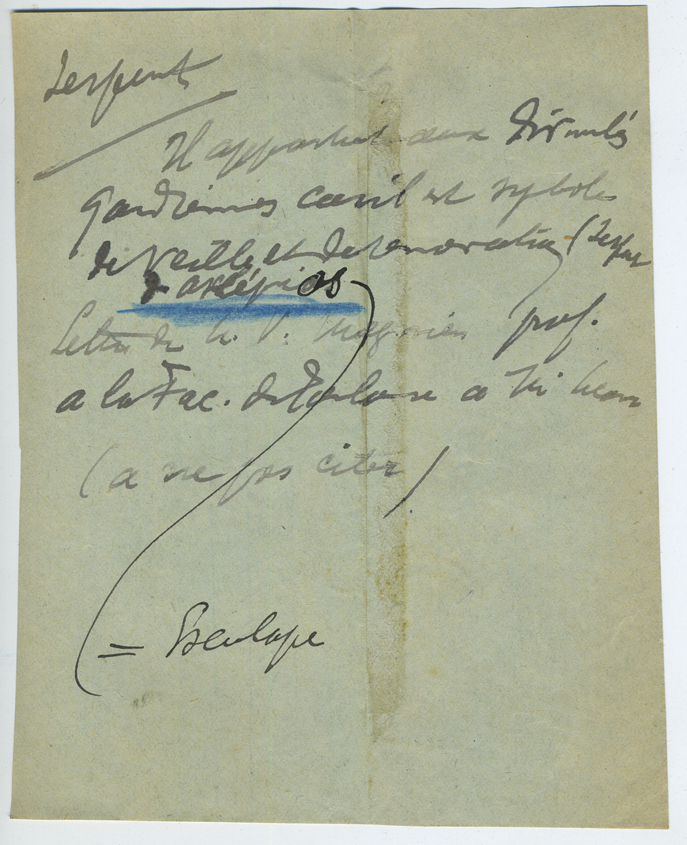 Serpent
Il appartient aux Divinités
Gardiennes car il est symbole
de veille et de renovation (Serpent
d'asklépios
Lettre de M. V. Magnien prof.
a la Fac. de Toulouse a Th
(a ne pas citer)
= Esculape